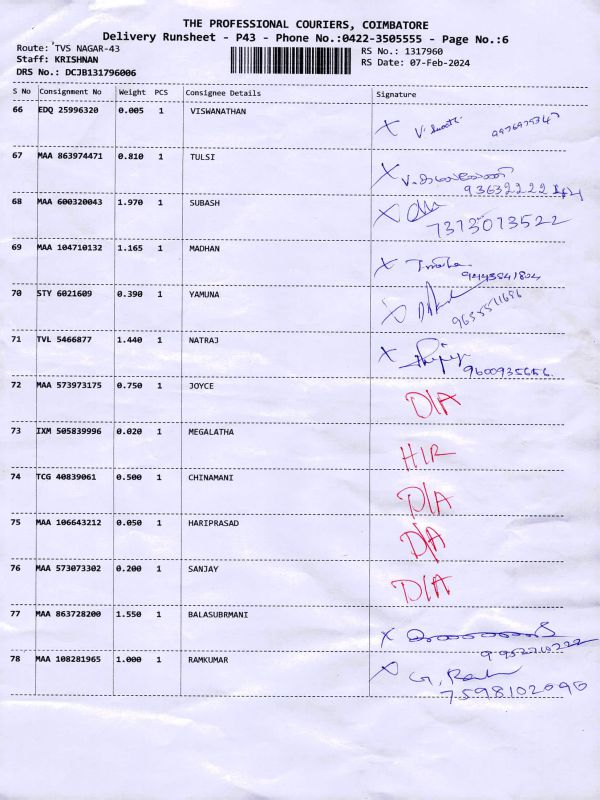 THE PROFESSIONAL COURIERS, COIMBATORE
Delivery Runsheet - P43 - Phone No.:0422-3505555 - Page No.:6
Route: TVS NAGAR-43 RS No.: 1317960
Staff: KRISHNAN RS Date: 07-Feb-2024
DRS No.: DCJB131796006
S No Consignment No Weight PCS Consignee Details Signature
66 EDQ 25996320 0.005 1 VISWANATHAN X
67 MAA 863974471 0.810 1 TULSI X
68 MAA 600320043 1.970 1 SUBASH X
7373073522
69 MAA 104710132 1.165 1 MADHAN X
70 STY 6021609 0.390 1 YAMUNA X
71 TVL 5466877 1.440 1 NATRAJ X
9600935656.
72 MAA 573973175 0.750 1 JOYCE D/A
73 IXM 505839996 0.020 1 MEGALATHA HIR
74 TCG 40839061 0.500 1 CHINAMANI D/A
75 MAA 106643212 0.050 1 HARIPRASAD D/A
76 MAA 573073302 0.200 1 SANJAY D/A
77 MAA 863728200 1.550 1 BALASUBRMANI X
9952210222
78 MAA 108281965 1.000 1 RAMKUMAR X
7598102090